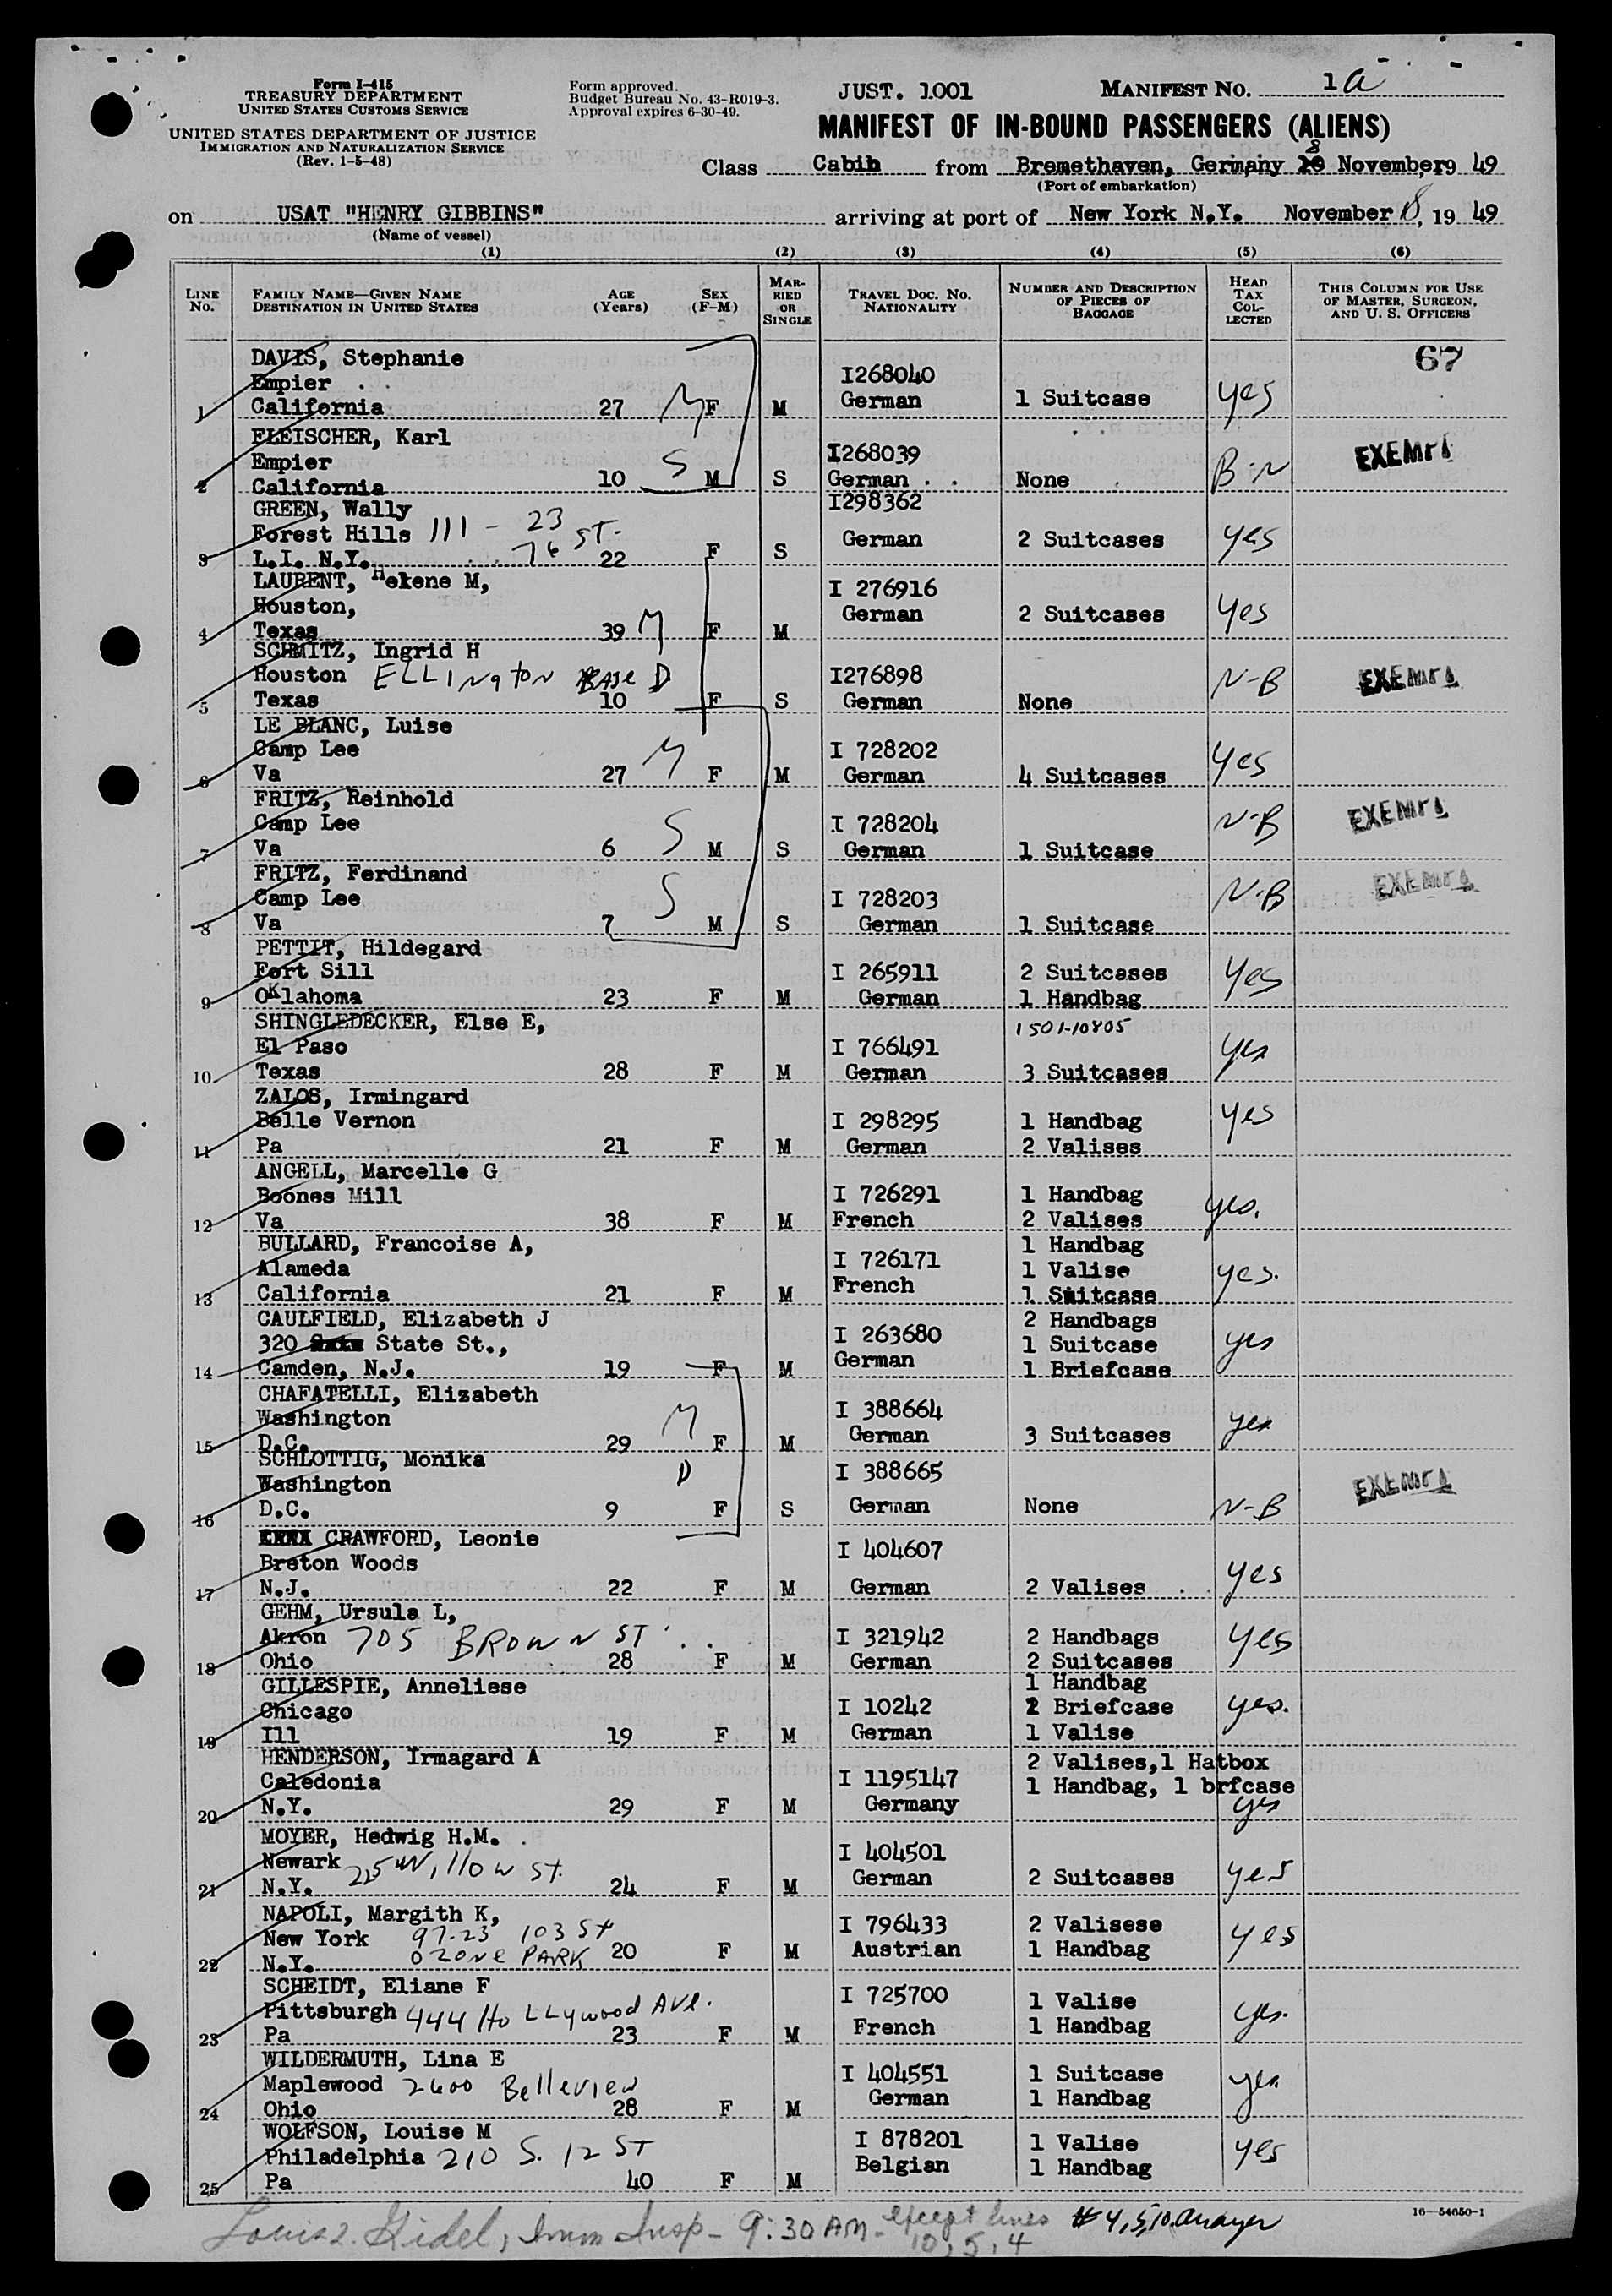 Form I-415
TREASURY DEPARTMENT
UNITED STATES CUSTOMS SERVICE
UNITED STATES DEPARTMENT OF JUSTICE
IMMIGRATION AND NATURALIZATION SERVICE
(Rev. 1-5-48)
Form approved.
Budget Bureau No. 43-R019-3.
Approval expires 6-30-49.
JUST. 1001
MANIFEST NO. 1a
MANIFEST OF IN-BOUND PASSENGERS (ALIENS)
Class Cabin from Bremethaven, Germany 8 November 19 49
(Port of embarkation)
on USAT "HENRY GIBBINS" arriving at port of New York N.Y. November 18, 19 49
(Name of vessel)
(1) (2) (3) (4) (5) (6)
LINE No. FAMILY NAME—GIVEN NAME DESTINATION IN UNITED STATES AGE (Years) SEX (F-M) MARRIED OR SINGLE TRAVEL DOC. NO. NATIONALITY NUMBER AND DESCRIPTION OF PIECES OF BAGGAGE HEAD TAX COLLECTED THIS COLUMN FOR USE OF MASTER, SURGEON, AND U. S. OFFICERS
67
DAVIS, Stephanie
Empier I268040
1 California 27 M F M German 1 Suitcase yes
FLEISCHER, Karl
Empier I268039 EXEMPT
2 California 10 S M S German None B-N
GREEN, Wally I298362
Forest Hills 111-23 76 St.
3 L.I. N.Y. 22 F S German 2 Suitcases yes
LAURENT, Helene M,
Houston, I 276916
4 Texas 39 M F M German 2 Suitcases yes
SCHMITZ, Ingrid H
Houston ELLINgtoN BASE D I276898 N-B EXEMPT
5 Texas 10 F S German None
LE BLANC, Luise
Camp Lee I 728202
6 Va 27 M F M German 4 Suitcases yes
FRITZ, Reinhold
Camp Lee I 728204 N-B EXEMPT
7 Va 6 S M S German 1 Suitcase
FRITZ, Ferdinand
Camp Lee I 728203 N-B EXEMPT
8 Va 7 S M S German 1 Suitcase
PETTIT, Hildegard
Fort Sill I 265911 2 Suitcases yes
9 Oklahoma 23 F M German 1 Handbag
SHINGLEDECKER, Else E, 1501-10805
El Paso I 766491 yes
10 Texas 28 F M German 3 Suitcases
ZALOS, Irmingard
Belle Vernon I 298295 1 Handbag yes
11 Pa 21 F M German 2 Valises
ANGELL, Marcelle G
Boones Mill I 726291 1 Handbag
12 Va 38 F M French 2 Valises yes.
BULLARD, Francoise A, 1 Handbag
Alameda I 726171 1 Valise yes.
13 California 21 F M French 1 Suitcase
CAULFIELD, Elizabeth J 2 Handbags
320 State St., I 263680 1 Suitcase yes
14 Camden, N.J. 19 F M German 1 Briefcase
CHAFATELLI, Elizabeth
Washington I 388664
15 D.C. 29 M F M German 3 Suitcases yes
SCHLOTTIG, Monika
Washington D I 388665 EXEMPT
16 D.C. 9 F S German None N-B
CRAWFORD, Leonie
Breton Woods I 404607
17 N.J. 22 F M German 2 Valises yes
GEHM, Ursula L,
Akron 705 BROWN ST. I 321942 2 Handbags yes
18 Ohio 28 F M German 2 Suitcases
GILLESPIE, Anneliese 1 Handbag
Chicago I 10242 2 Briefcase yes.
19 Ill 19 F M German 1 Valise
HENDERSON, Irmagard A 2 Valises,1 Hatbox
Caledonia I 1195147 1 Handbag, 1 brfcase
20 N.Y. 29 F M Germany yes
MOYER, Hedwig H.M.
Newark 225 Willow St. I 404501
21 N.Y. 24 F M German 2 Suitcases yes
NAPOLI, Margith K,
New York 97-23 103 St I 796433 2 Valisese yes
22 N.Y. OZONE PARK 20 F M Austrian 1 Handbag
SCHEIDT, Eliane F
Pittsburgh 444 HoLLywood AVe. I 725700 1 Valise yes.
23 Pa 23 F M French 1 Handbag
WILDERMUTH, Lina E
Maplewood 2600 Belleview I 404551 1 Suitcase yes
24 Ohio 28 F M German 1 Handbag
WOLFSON, Louise M I 878201 1 Valise yes
Philadelphia 210 S. 12 ST Belgian 1 Handbag
25 Pa 40 F M
16—54650-1
Louis Gidel, Imm Insp- 9:30 AM- except lines 10, 5, 4 # 4,5,10.